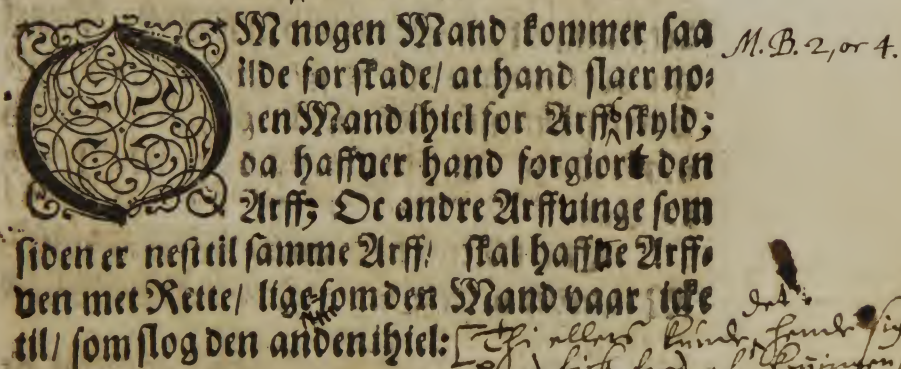 OM nogen Mand kommer saa
ilde for skade/ at hand slaer no⸗
gen Mand ihiel for Arffs skyld;
da haffver hand forgiort den
Arff; Oc andre Arffvinge som
siden er nest til samme Arff/ skal haffve Arff⸗
ven met Rette/ lige⸗som den Mand vaar icke
til/ som slog den anden ihiel:
M. B. 2, or 4.
[Thi ellers kunde det hende sig